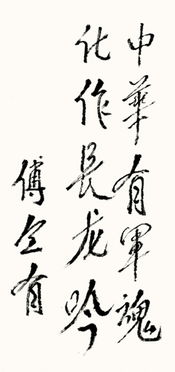 中華有軍魂
化作長龙吟
傅全有